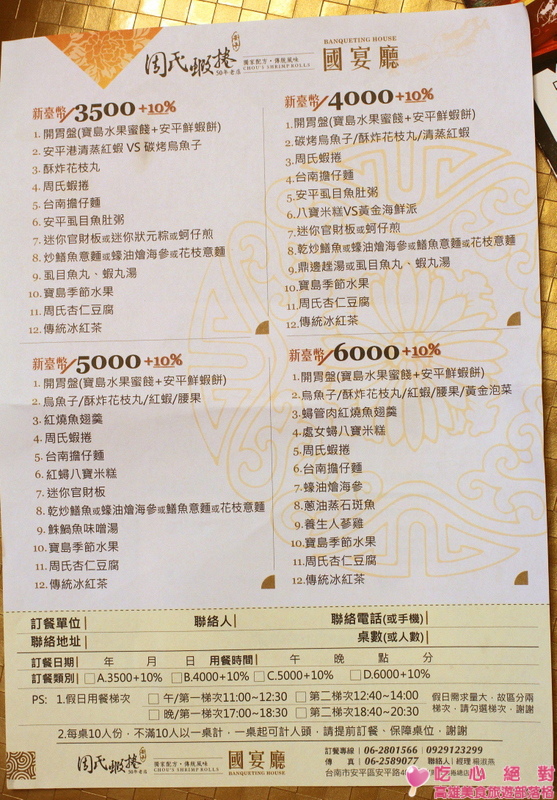 周氏蝦捲
50年老店
獨家配方・傳統風味
CHOU'S SHRIMP ROLLS
BANQUETING HOUSE
國宴廳
新臺幣/3500+10%
1. 開胃盤(寶島水果蜜餞+安平鮮蝦餅)
2. 安平港清蒸紅蝦 VS 碳烤烏魚子
3. 酥炸花枝丸
4. 周氏蝦捲
5. 台南擔仔麵
6. 安平虱目魚肚粥
7. 迷你官財板或迷你狀元粽或蚵仔煎
8. 炒鱔魚意麵或蠔油燴海參或花枝意麵
9. 虱目魚丸、蝦丸湯
10. 寶島季節水果
11. 周氏杏仁豆腐
12. 傳統冰紅茶
新臺幣/4000+10%
1. 開胃盤(寶島水果蜜餞+安平鮮蝦餅)
2. 碳烤烏魚子/酥炸花枝丸/清蒸紅蝦
3. 周氏蝦捲
4. 台南擔仔麵
5. 安平虱目魚肚粥
6. 八寶米糕VS黃金海鮮派
7. 迷你官財板或蚵仔煎
8. 乾炒鱔魚或蠔油燴海參或鱔魚意麵或花枝意麵
9. 鼎邊趖湯或虱目魚丸、蝦丸湯
10. 寶島季節水果
11. 周氏杏仁豆腐
12. 傳統冰紅茶
新臺幣/5000+10%
1. 開胃盤(寶島水果蜜餞+安平鮮蝦餅)
2. 烏魚子/酥炸花枝丸/紅蝦/腰果
3. 紅燒魚翅羹
4. 周氏蝦捲
5. 台南擔仔麵
6. 紅蟳八寶米糕
7. 迷你官財板
8. 乾炒鱔魚或蠔油燴海參或鱔魚意麵或花枝意麵
9. 鮢鍋魚味噌湯
10. 寶島季節水果
11. 周氏杏仁豆腐
12. 傳統冰紅茶
新臺幣/6000+10%
1. 開胃盤(寶島水果蜜餞+安平鮮蝦餅)
2. 烏魚子/酥炸花枝丸/紅蝦/腰果/黃金泡菜
3. 蟳管肉紅燒魚翅羹
4. 處女蟳八寶米糕
5. 周氏蝦捲
6. 台南擔仔麵
7. 蠔油燴海參
8. 蔥油蒸石斑魚
9. 養生人蔘雞
10. 寶島季節水果
11. 周氏杏仁豆腐
12. 傳統冰紅茶
訂餐單位| 聯絡人| 聯絡電話(或手機)|
聯絡地址| 桌數(或人數)|
訂餐日期| 年 月 日 用餐時間| 午 晚 點 分
訂餐類別| □A.3500+10% □B.4000+10% □C.5000+10% □D.6000+10%
PS: 1.假日用餐梯次 □午/第一梯次11:00~12:30 □第二梯次12:40~14:00 假日需求量大,故區分兩
□晚/第一梯次17:00~18:30 □第二梯次18:40~20:30 梯次,請勾選梯次,謝謝
2.每桌10人份,不滿10人以一桌計,一桌起可計人頭,請提前訂餐、保障桌位,謝謝
周氏蝦捲
50年老店
獨家配方・傳統風味
CHOU'S SHRIMP ROLLS
BANQUETING HOUSE
國宴廳
訂餐專線 | 06-2801566 | 0929123299
傳 真 | 06-2589077 聯絡人 | 經理 楊淑燕
台南市安平區安平路
吃心絕對
高雄美食旅遊部落格